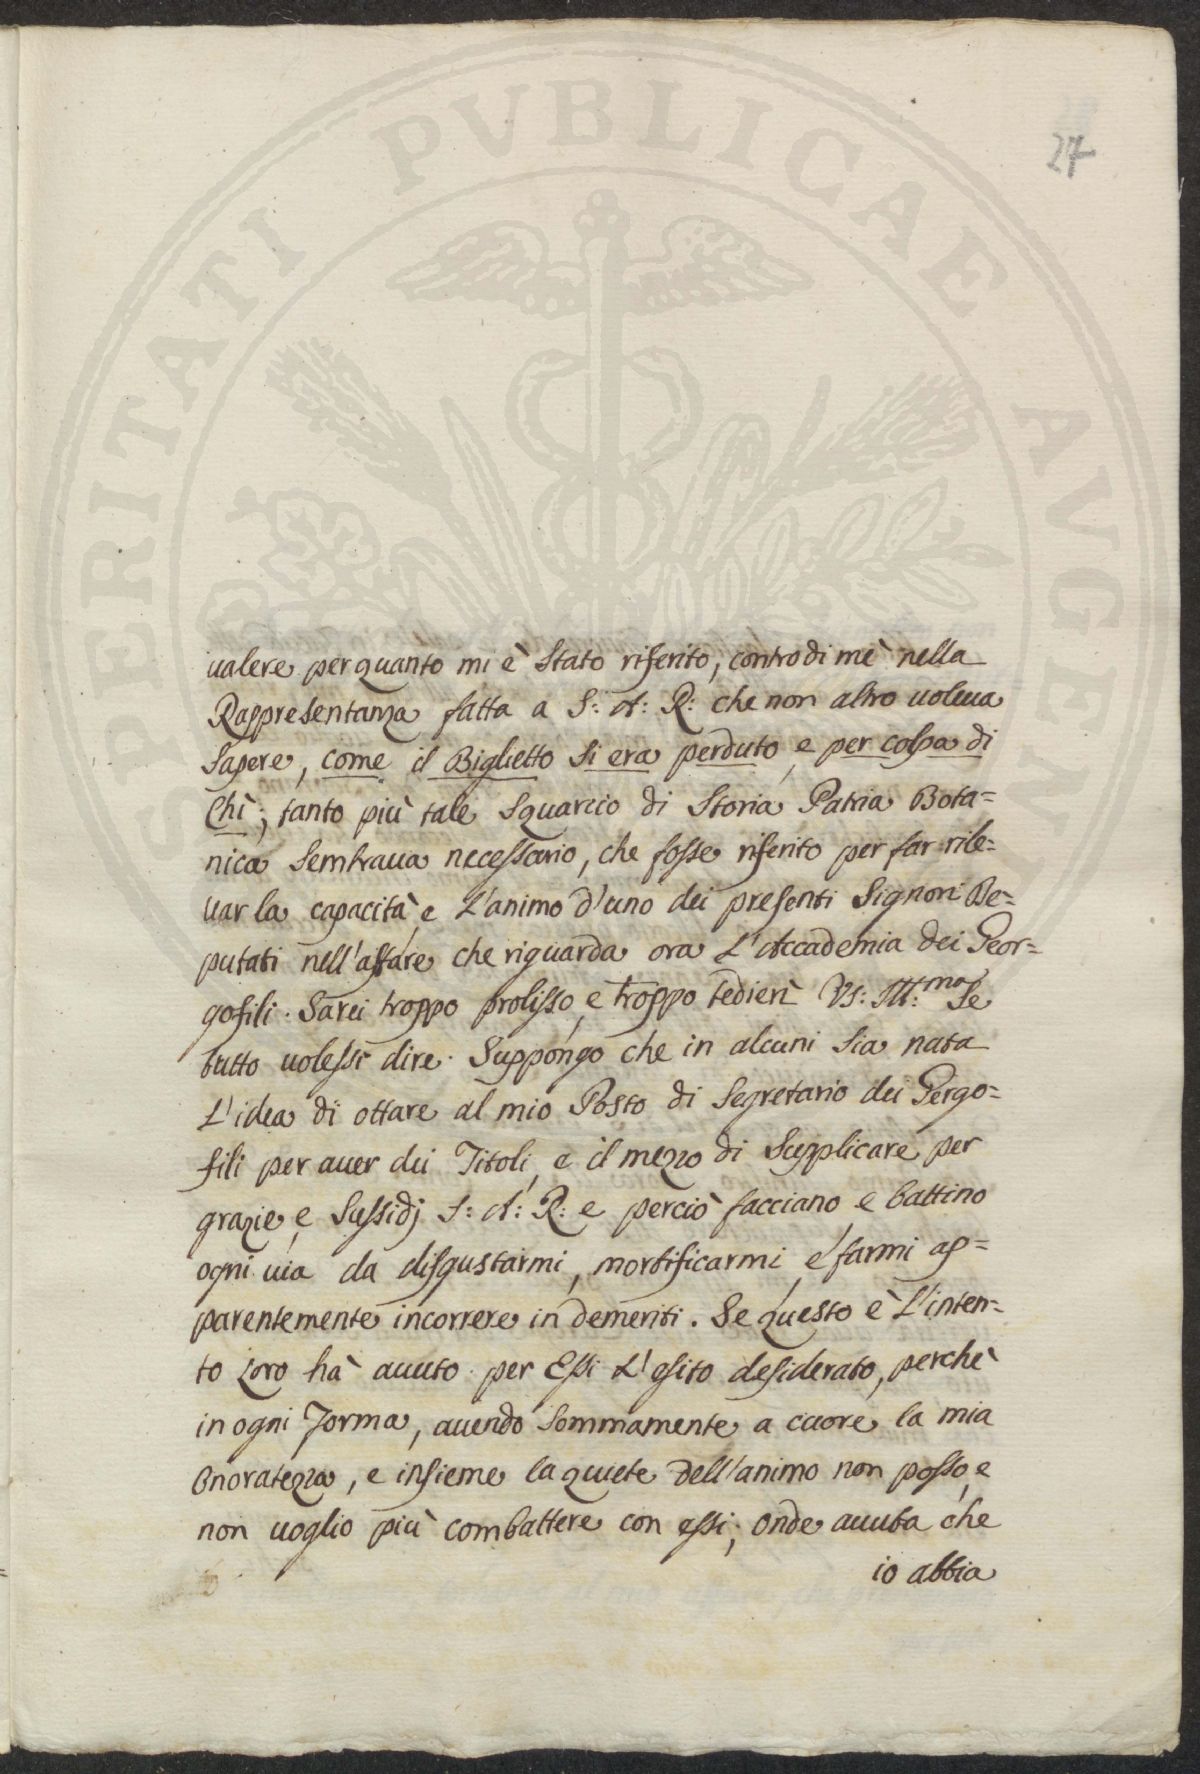 PROSPERITATI PVBLICAE AVGENDAE
27
valere per quanto mi è Stato riferito, contro di mè nella
Rappresentanza fatta a S: A: R: che non altro voleva
Sapere, come il Biglietto Si era perduto, e per colpa di
Chi; tanto più tale Squarcio di Storia Patria Bota=
nica Sembrava necessario, che fosse riferito per far rile=
var la capacità, e L'animo d'uno dei presenti Signori De=
putati nell'affare che riguarda ora L'Accademia dei Geor=
gofili. Sarei troppo prolisso, e troppo tedierì VS: Ill:ma Se
tutto volessi dire. Suppongo che in alcuni Sia nata
L'idea di ottare al mio Posto di Segretario dei Gergo=
fili per aver dei Titoli, e il mezzo di Supplicare per
grazie, e Sussidj S: A: R: e perciò facciano, e battino
ogni via da disgustarmi, mortificarmi, e farmi ap=
parentemente incorrere in demeriti. Se questo è L'inten=
to Loro hà avuto per Essi L'esito desiderato, perchè
in ogni forma, avendo Sommamente a cuore la mia
Onoratezza, e insieme la quiete dell'animo non posso, e
non voglio più combattere con essi; onde avuta che
io abbia